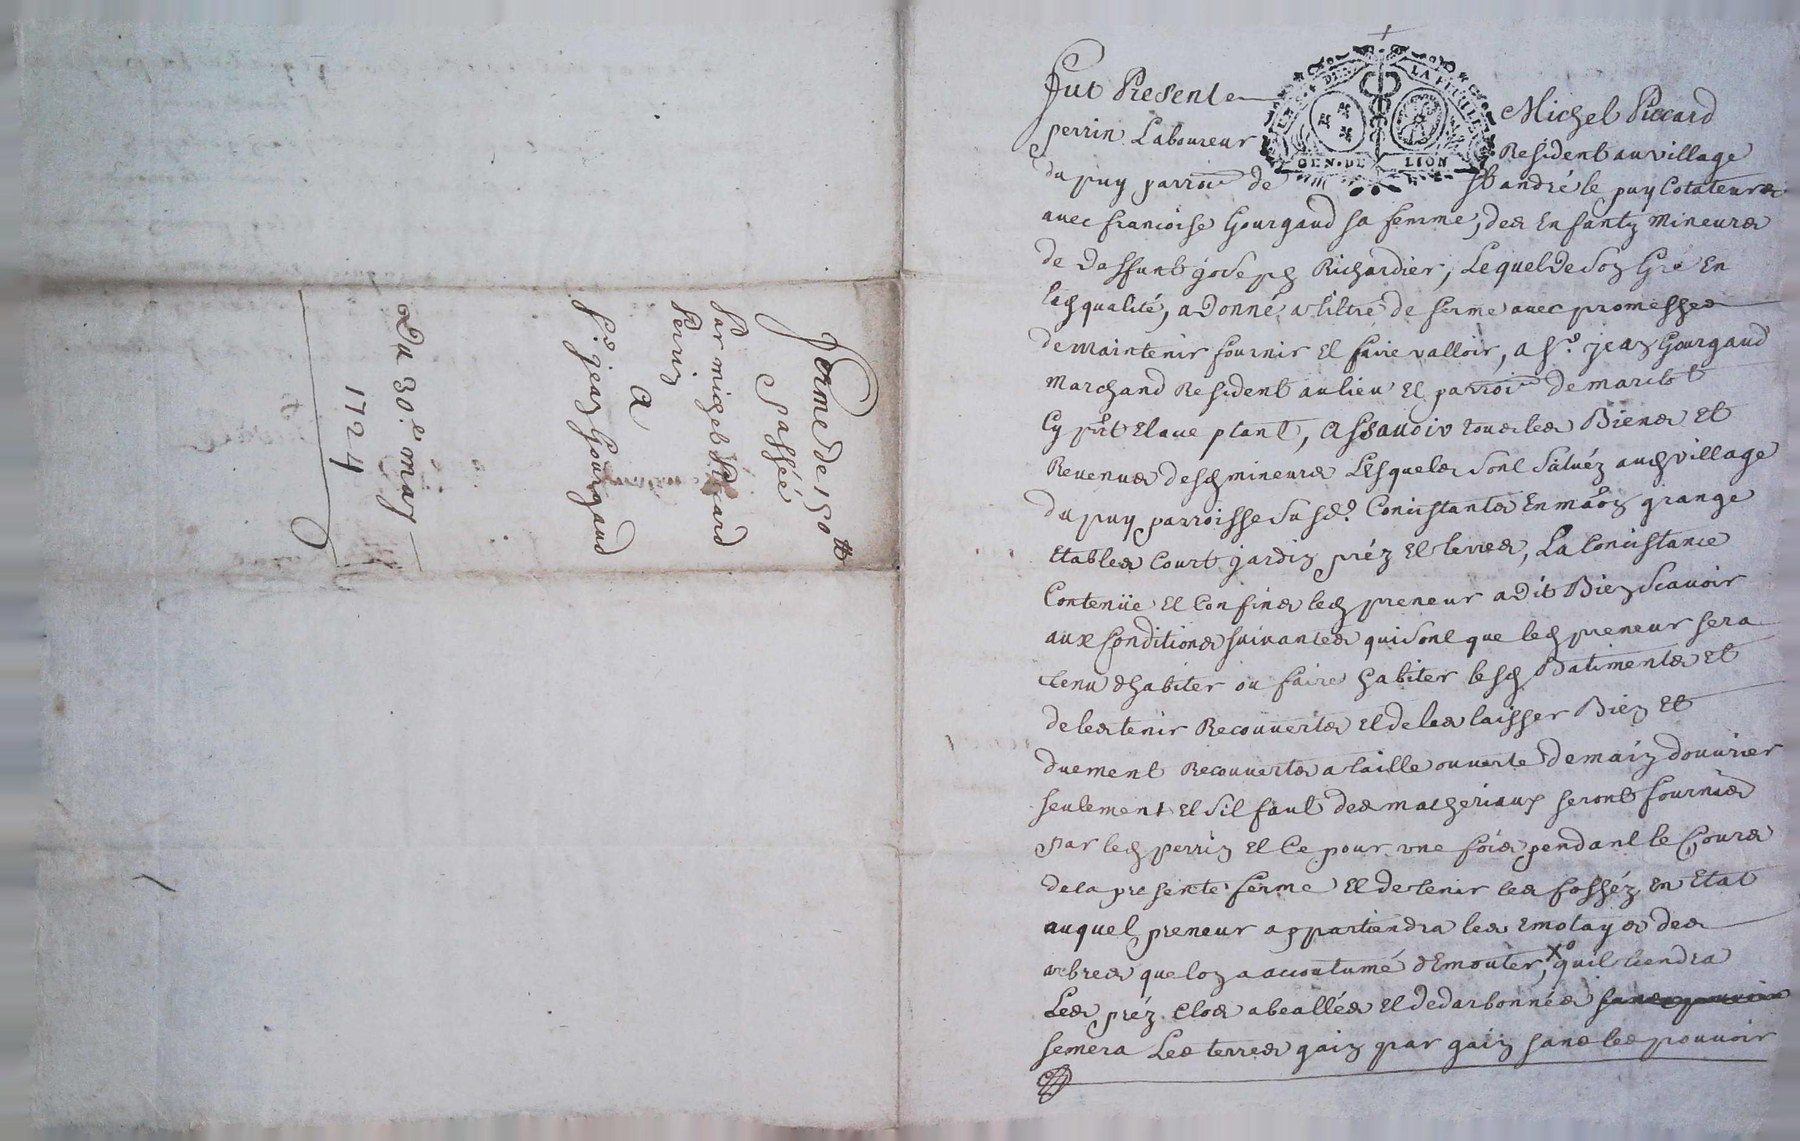 Ferme de 150 ₶
Passée
Par michel Piccard
Perrin
A
Sr. jean Gourgaud
Du 30e. may
1724
GEN. DE LION
Fut Present Michel Piccard
perrin Laboureur Resident au village
du puy parroi. de St andré le puy Cotateur
avec francoise Gourgaud sa femme, des Enfants mineurs
de deffunt joseph Richardier, Lequel de son Gré En
lad qualité, a donné a tiltre de ferme avec promesse
de maintenir fournir et faire valloir, a Sr. jean Gourgaud
Marchand Resident au lieu et parroi. de
Cy prnt et acceptant, Assavoir tous les Biens et
Revenus desd mineurs Lesquels sont situéz aud village
du puy parroisse susd. Concistants En maon grange
Etables Court jardin préz et terres, La Concistance
Contenüe et Confins led preneur a dit Bien scavoir
aux Conditions suivantes qui sont que led preneur sera
tenu d'habiter ou faire habiter lesd Batiments et
de les tenir Recouverts et de les laisser Bien et
duement Recouverts a taille ouverte de main d'ouvrier
seulement et s'il faut des matheriaux seront fournis
Par led perrin et Ce pour une fois pendant le Cours
de la presente ferme et de tenir les fosséz En Etat
auquel preneur appartiendra les des
arbres que lon a accoutumé d'Emouter, Xo quil tiendra
Les préz Clos abeallés et dedarbonnés
semera Les terres gain par gain sans les pouvoir